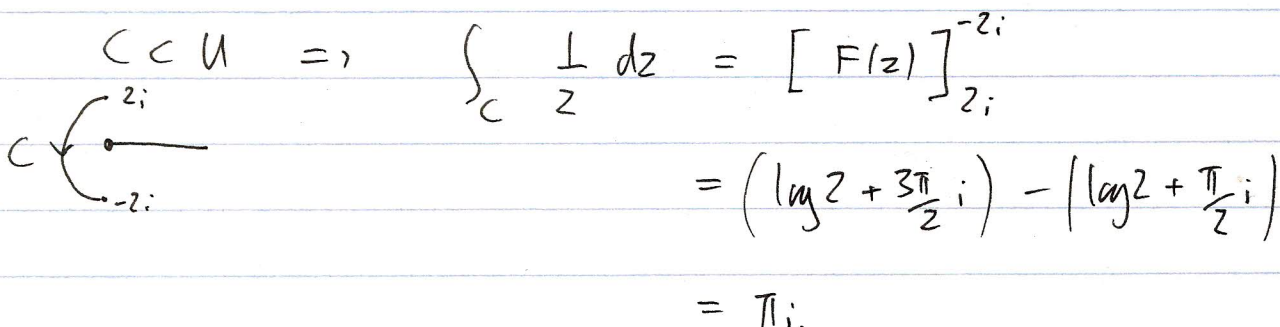 C ⊂ U => ∫_C 1/z dz = [F(z)]_{2i}^{-2i}
2i
C
-2i
= (log 2 + 3π/2 i) - (log 2 + π/2 i)
= πi.